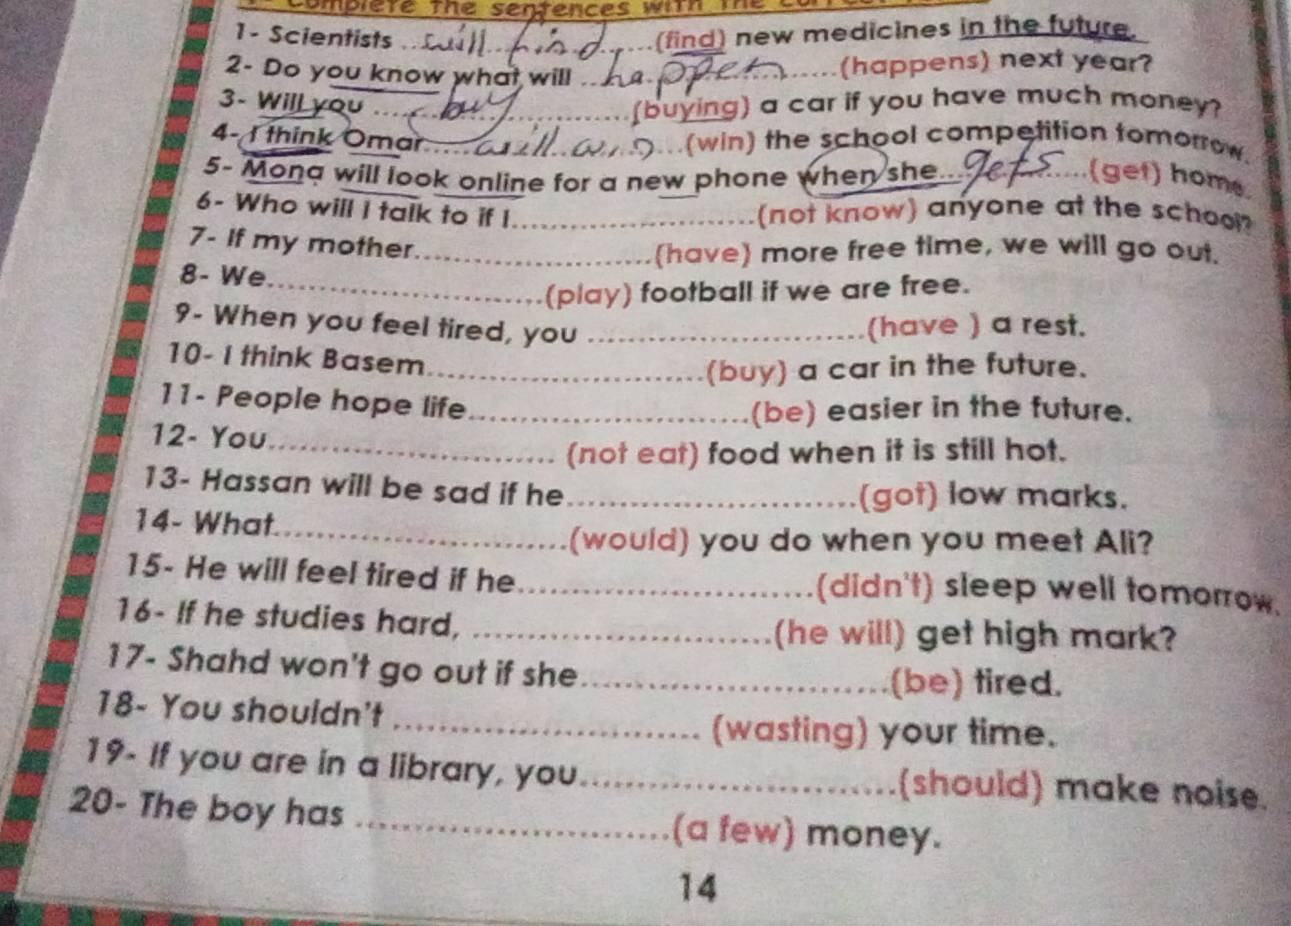 complete the sentences with the
1- Scientists ...will find......(find) new medicines in the future.
2- Do you know what will ...happen......(happens) next year?
3- Will you ....buy..............(buying) a car if you have much money?
4- I think Omar.....will win...(win) the school competition tomorrow.
5- Mona will look online for a new phone when she...gets.....(get) home.
6- Who will I talk to if I..........................(not know) anyone at the school?
7- If my mother..........................(have) more free time, we will go out.
8- We..............................(play) football if we are free.
9- When you feel tired, you ..............................(have ) a rest.
10- I think Basem..............................(buy) a car in the future.
11- People hope life..............................(be) easier in the future.
12- You.............................. (not eat) food when it is still hot.
13- Hassan will be sad if he..............................(got) low marks.
14- What..............................(would) you do when you meet Ali?
15- He will feel tired if he..............................(didn't) sleep well tomorrow.
16- If he studies hard, ..............................(he will) get high mark?
17- Shahd won't go out if she..............................(be) tired.
18- You shouldn't .............................. (wasting) your time.
19- If you are in a library, you..............................(should) make noise.
20- The boy has ..............................(a few) money.
14